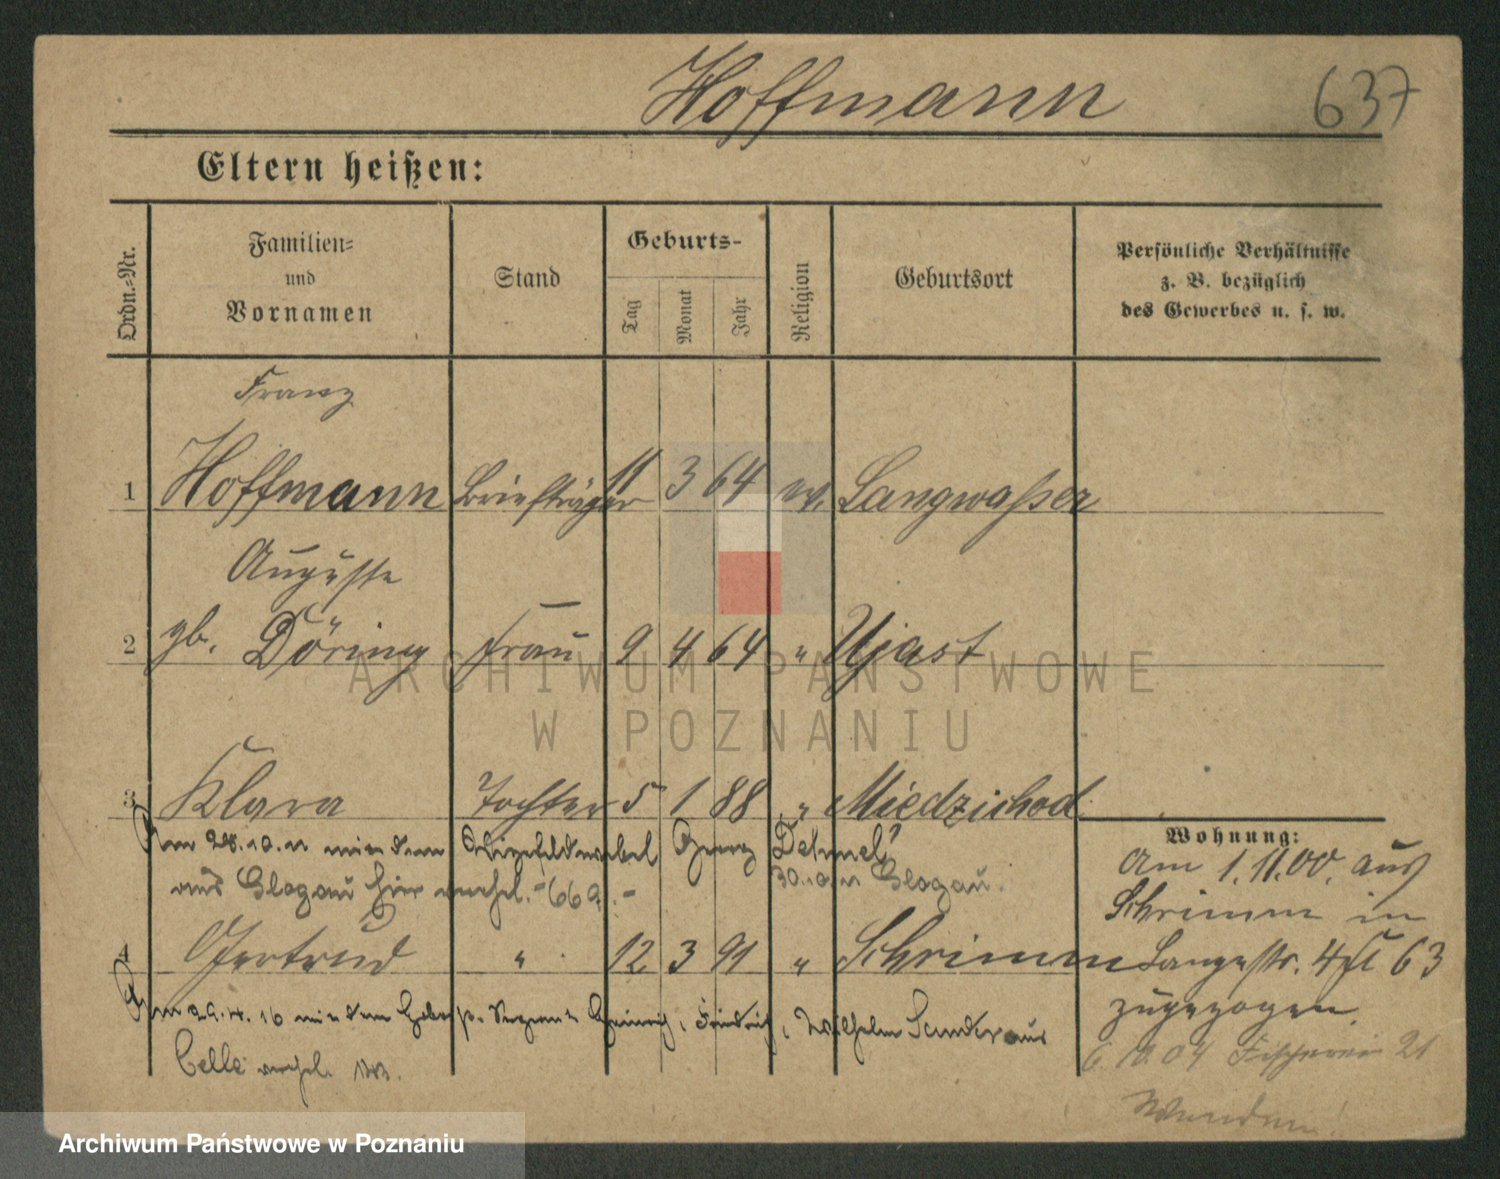 Hoffmann
637
Eltern heißen:
Ordn.-Nr.
Familien-
und
Vornamen
Stand
Geburts-
Tag
Monat
Jahr
Religion
Geburtsort
Persönliche Verhältnisse
z. B. bezüglich
des Gewerbes u. s. w.
Franz
1 Hoffmann Briefträger 11 3 64 ev. Langwasser
Auguste
2 gb. Döring Frau 9 4 64 " Ujast
ARCHIWUM PAŃSTWOWE
W POZNANIU
3 Klara Tochter 5 1 88 " Miedzichod
Am 28.10.11 mit dem Vizefeldwebel Dehmel
aus Glogau hier verehel. 669.
30.10.11 Glogau.
4 Gertrud " 12 3 91 " Schrimm
Am 29.4.16 mit dem Sergant Heinrich, Friedrich, Wilhelm Sander aus
Celle verehel.
Wohnung:
Am 1.11.00. aus
Schrimm in
Langestr. 4 63
zugezogen.
6.10.04 Fischerei 21
Wenden!
Archiwum Państwowe w Poznaniu